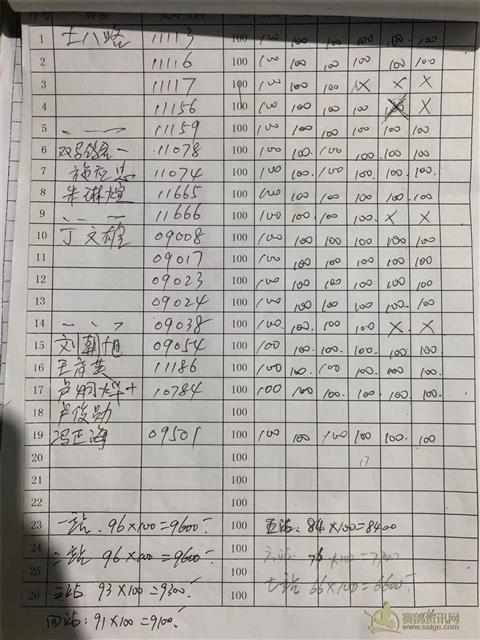 序号 姓名
1 11113 100 100 100 100 100 100 100
2 11116 100 100 100 100 100 100 100
3 11117 100 100 100 100 X X X
4 11156 100 100 100 100 100 X
5 11159 100 100 100 100 100 100 100
6 11078 100 100 100 100 100 100 100
7 11074 100 100 100 100 100 100 100
8 朱琳煌 11665 100 100 100 100 100 100 100
9 11666 100 100 100 100 100 X X
10 丁文雄 09008 100 100 100 100 100 100 100
11 09017 100 100 100 100 100 100 100
12 09023 100 100 100 100 100 100 100
13 09024 100 100 100 100 100 100 100
14 09038 100 100 100 100 100 X X
15 刘朝旭 09054 100 100 100 100 100 100 100
16 11186 100 100 100 100 100 100 100
17 10784 100 100 100 100 100 100 100
18 卢俊勋 100
19 冯正海 09501 100 100 100 100 100 100 100
20 100
21 100
22 100
23 一站: 96×100=9600 100 五站: 84×100=8400
24 二站 96×100=9600 100 六站 76×100=7600
25 100 七站 66×100=6600
26 三站 93×100=9300 100
四站: 91×100=9100
赛鸽资讯网
www.saige.com